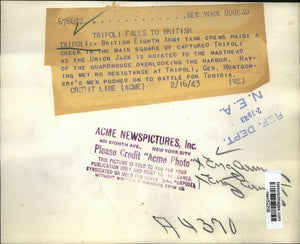 676672 NEW YORK BUREAU
TRIPOLI FALLS TO BRITISH
TRIPOLI:- BRITISH EIGHTH ARMY TANK CREWS RAISE A
CHEER IN THE MAIN SQUARE OF CAPTURED TRIPOLI
AS THE UNION JACK IS HOISTED TO THE MASTHEAD
OF THE GUARDHOUSE OVERLOOKING THE HARBOR. HAV-
ING MET NO RESISTANCE AT TRIPOLI, GEN. MONTGOM-
ERY'S MEN PUSHED ON TO BATTLE FOR TUNISIA.
CREDIT LINE (ACME) 2/16/43 (SS)
REF. DEPT.
N. E. A.
ACME NEWSPICTURES, Inc.
461 EIGHTH AVE.
NEW YORK CITY
Please Credit "Acme Photo"
THIS PICTURE IS SOLD TO YOU FOR YOUR
PUBLICATION ONLY AND MUST NOT BE LOANED,
SYNDICATED OR USED FOR ADVERTISING PURPOSES
WITHOUT WRITTEN PERMISSION FROM US
A4370